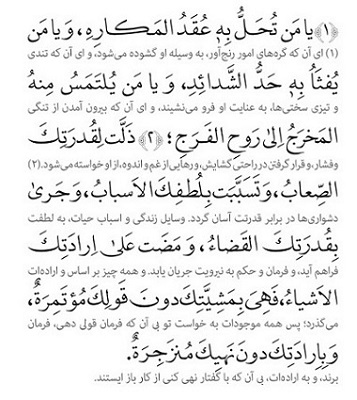 ﴿۱﴾ يا مَن تُحَلُّ بِهِ عُقَدُ المَكارِهِ، وَيا مَن
(۱) ای آن که گره‌های امور رنج‌آور، به وسیله او گشوده می‌شود، و ای آن که تندی
يُفثَأُ بِهِ حَدُّ الشَّدائِدِ، وَ يا مَن يُلتَمَسُ مِنهُ
و تیزی سختی‌ها، به عنایت او فرو می‌نشیند، و ای آن که بیرون آمدن از تنگی
المَخرَجُ إلىٰ رَوحِ الفَرَجِ؛ ﴿۲﴾ ذَلَّت لِقُدرَتِكَ
وفشار، و قرار گرفتن در راحتی گشایش، و رهایی از غم و اندوه، از او خواسته می‌شود. (۲)
الصِّعابُ، وَتَسَبَّبَت بِلُطفِكَ الأسبابُ، وَجَرىٰ
دشواری‌ها در برابر قدرتت آسان گردد. وسایل زندگی و اسباب حیات، به لطفت
بِقُدرَتِكَ القَضاءُ، وَ مَضَت عَلىٰ إرادَتِكَ
فراهم آید، و فرمان و حکم به نیرویت جریان یابد. و همه چیز بر اساس و اراده‌ات
الأشياءُ، فَهِيَ بِمَشِيَّتِكَ دونَ قَولِكَ مُؤتَمِرَةٌ،
می‌گذرد؛ پس همه موجودات به خواست تو بی آن که فرمان قولی دهی، فرمان
وَ بِإرادَتِكَ دونَ نَهيِكَ مُنزَجِرَةٌ.
برند، و به اراده‌ات، بی آن که با گفتار نهی کنی از کار باز ایستند.